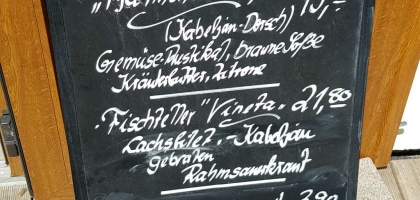 (Kabeljau-Dorsch)
Gemüse-Rustikal, braune Soße
Kräuterbutter, Zitrone
Fischteller "Vineta" 21,80
Lachsfilet - Kabeljau
gebraten
Rahmsauerkraut